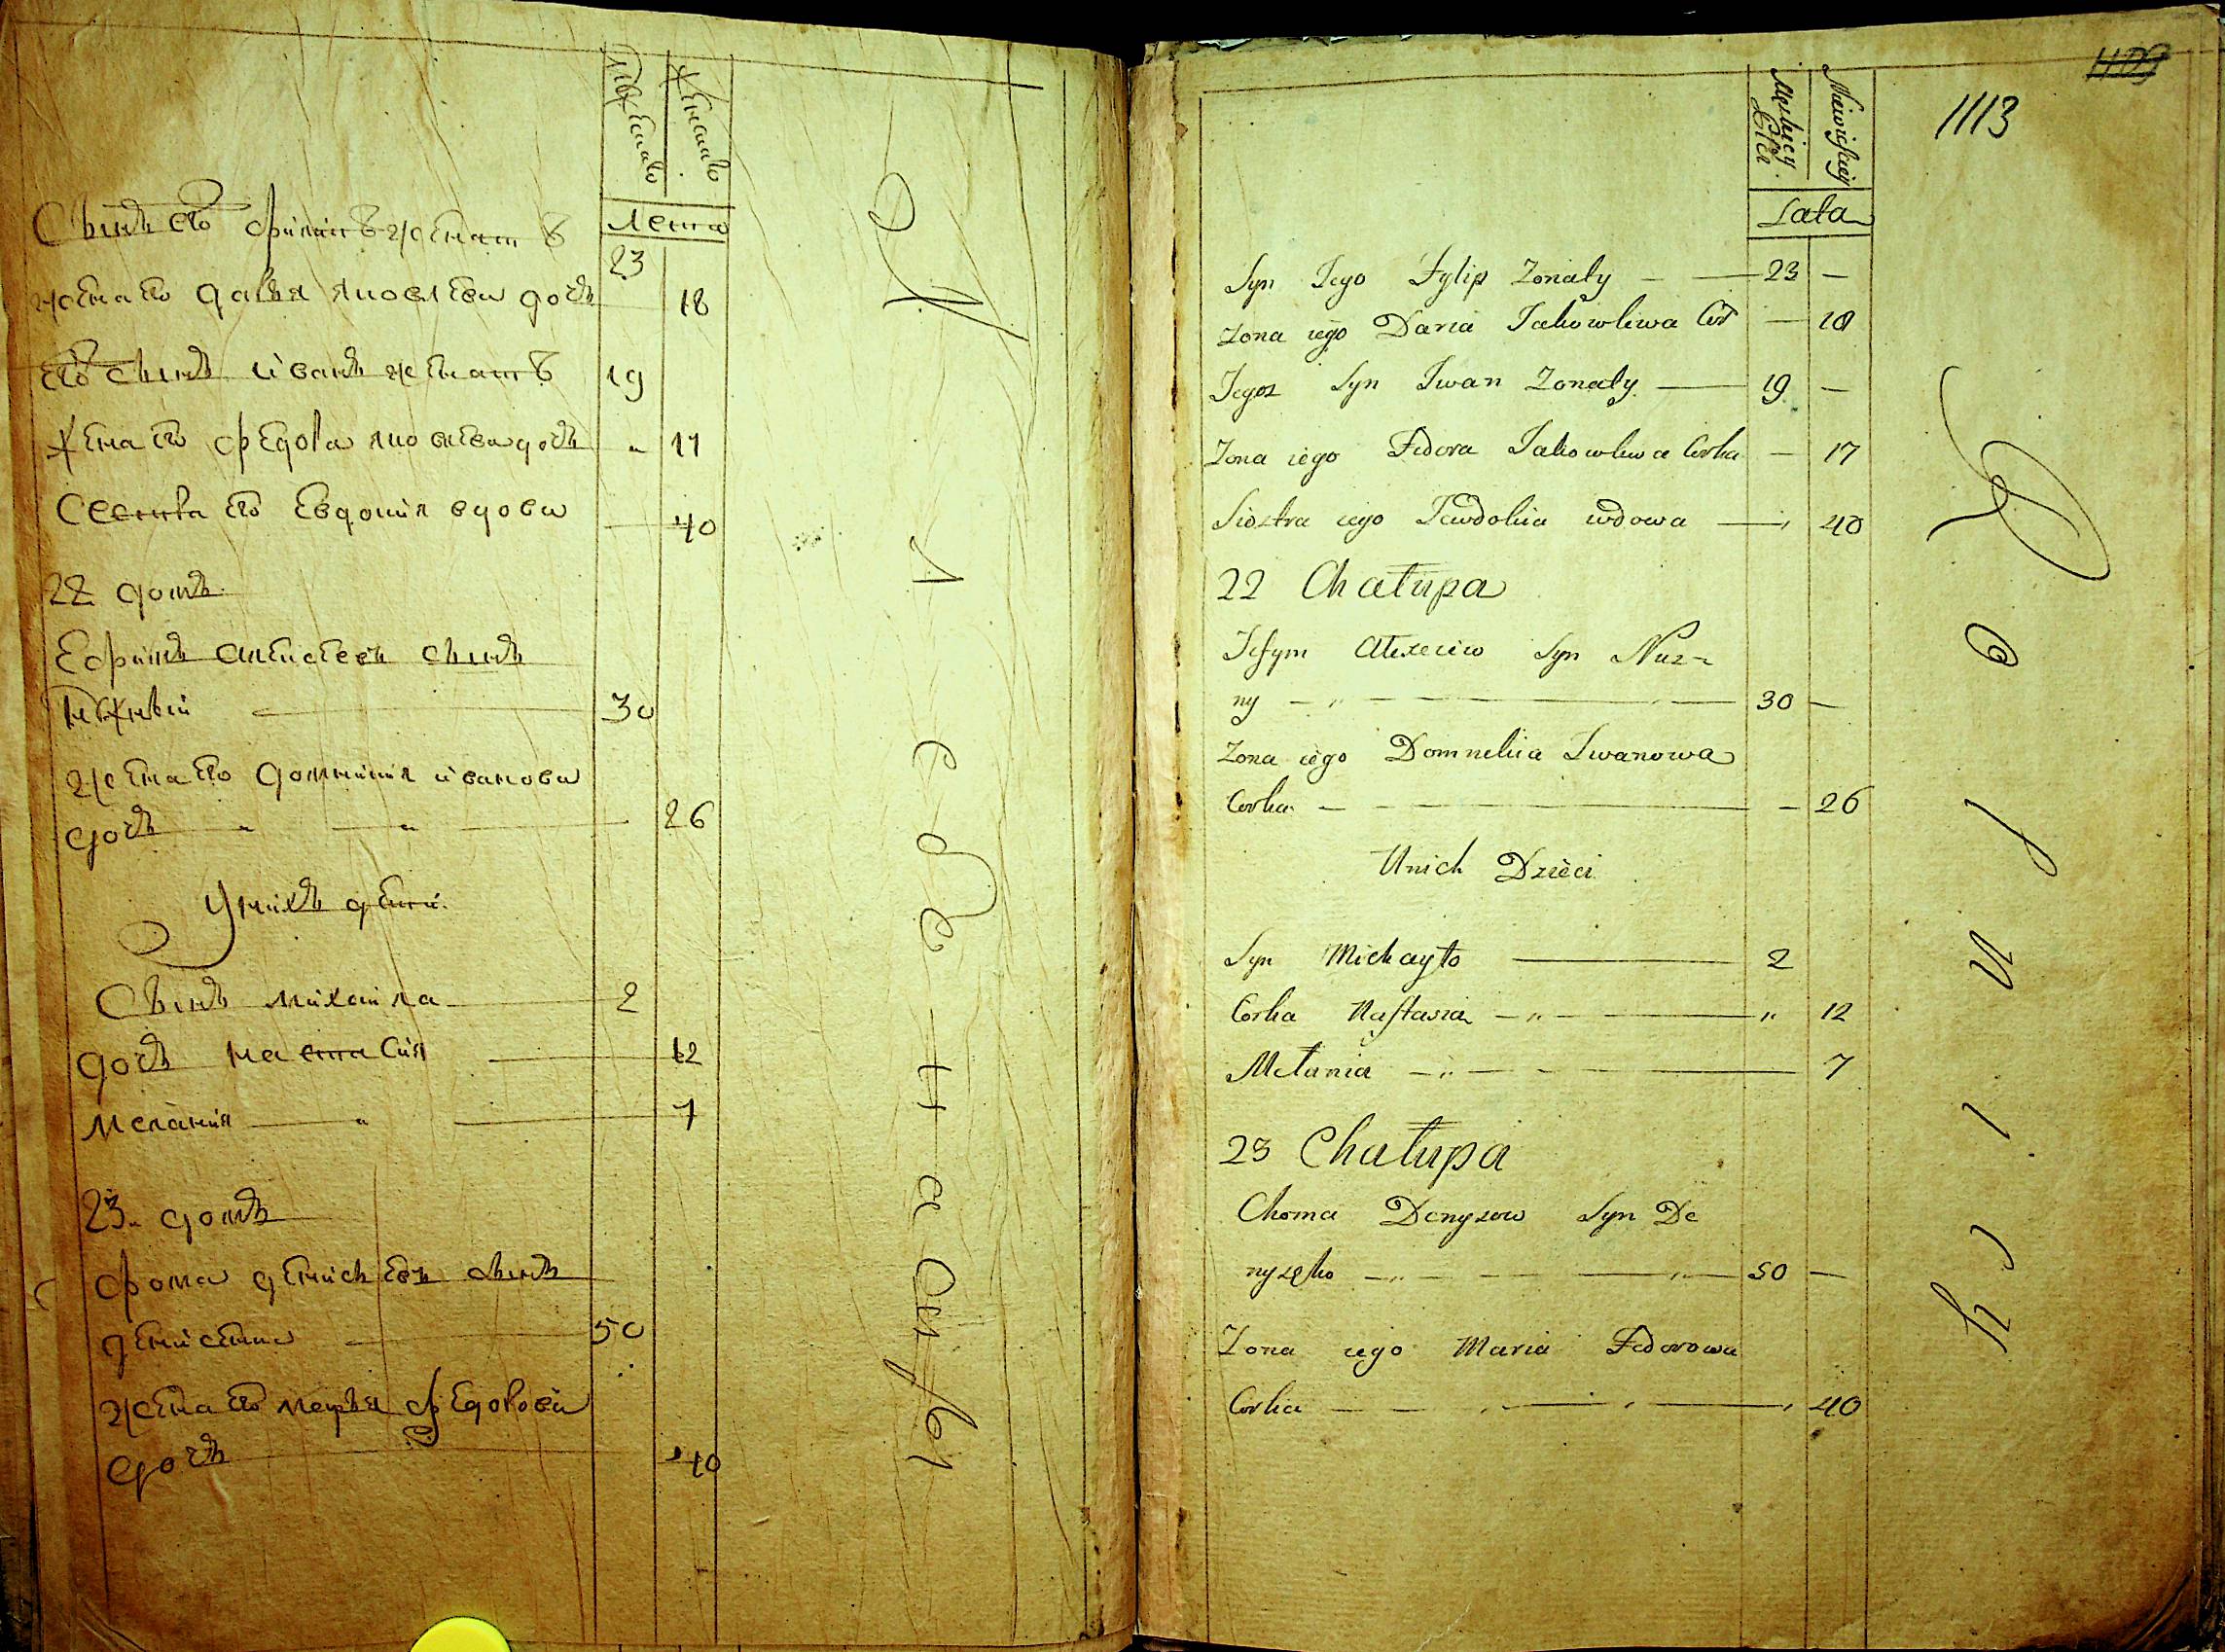 Мужеска
Женска
Лета
Сынъ его Филипъ женатъ 23
жена его Дарья Яковлева дочь 18
его сынъ Иванъ женатъ 19
Жена его Федора Яковлева дочь 17
Сестра его Евдокия вдова 40
22 домъ
Ефимъ Алексеевъ сынъ
Нужный 30
жена его Домникия Иванова
дочь 26
У нихъ дети
Сынъ Михайла 2
дочь Настасия 12
Мелания 7
23 домъ
Фома Денисьевъ сынъ
Денисенко 50
жена его Марья Федорова
дочь 40
1113
Męzkiey Płci
Niewieściey
Lata
Syn Jego Fylip Zonaty 23
Zona iego Daria Jakowliwa Cor 18
Jegoz Syn Iwan Zonaty 19
Zona iego Fedora Jakowliwa Corka 17
Siostra iego Jewdokia wdowa 40
22 Chałupa
Jefym Alexeiiw Syn Nuz=
ny 30
Zona iego Domnekia Iwanowa
Corka 26
Unich Dzieci
Syn Michayło 2
Corka Nastasia 12
Mełania 7
23 Chałupa
Choma Denysow Syn De
nyszęko 50
Zona iego Maria Fedorowa
Corka 40